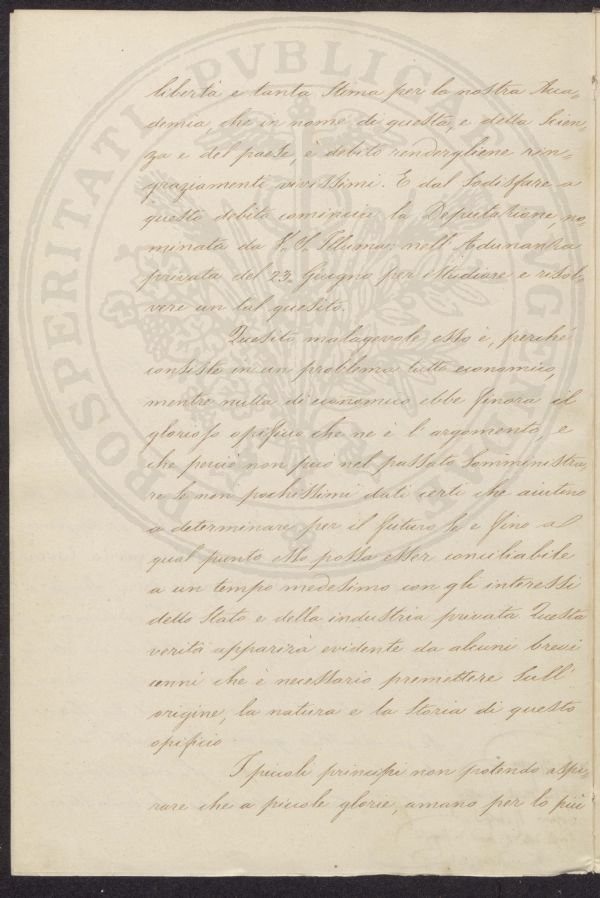 PROSPERITATI PVBLICAE AVGENDAE
libertà e tanta stima per la nostra Acca-
demia, che in nome di questa, e della Scien-
za e del paese, è debito rendergliene rin-
graziamenti vivissimi. E dal sodisfare a
questo debito comincia la Deputazione, no-
minata da V. S. Illuma. nell'Adunanza
privata del 23. Giugno per studiare e risol-
vere un tal quesito.
Quesito malagevole esso è, perché
consiste in un problema tutto economico,
mentre nulla di economico ebbe finora il
glorioso opificio che ne è l'argomento, e
che perciò non può nel passato somministra-
re se non pochissimi dati certi che aiutino
a determinare per il futuro se e fino a
qual punto esso possa esser conciliabile
a un tempo medesimo con gli interessi
dello Stato e della industria privata. Questa
verità apparirà evidente da alcuni brevi
cenni che è necessario premettere sull'
origine, la natura e la storia di questo
opificio.
I piccoli principi non potendo aspi-
rare che a piccole glorie, amano per lo più